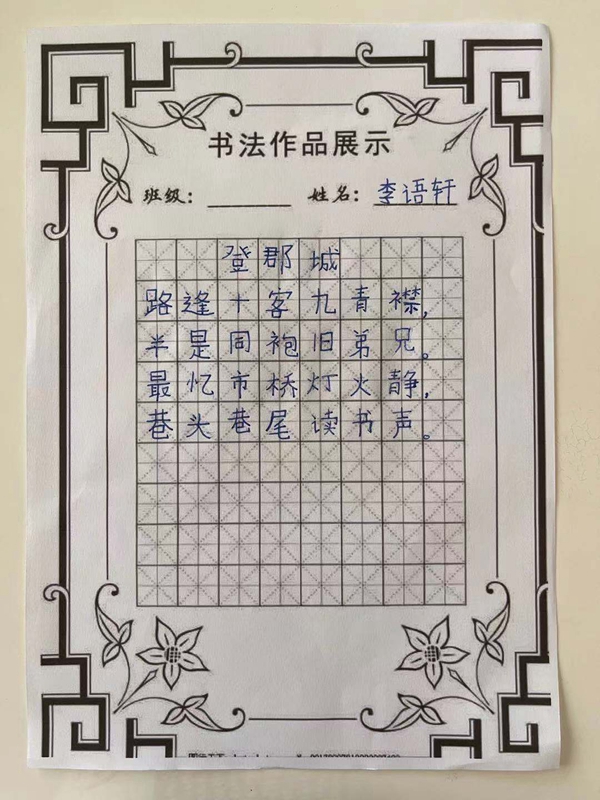 书法作品展示
班级： 姓名：李语轩
登郡城
路逢十客九青襟，
半是同袍旧弟兄。
最忆市桥灯火静，
巷头巷尾读书声。